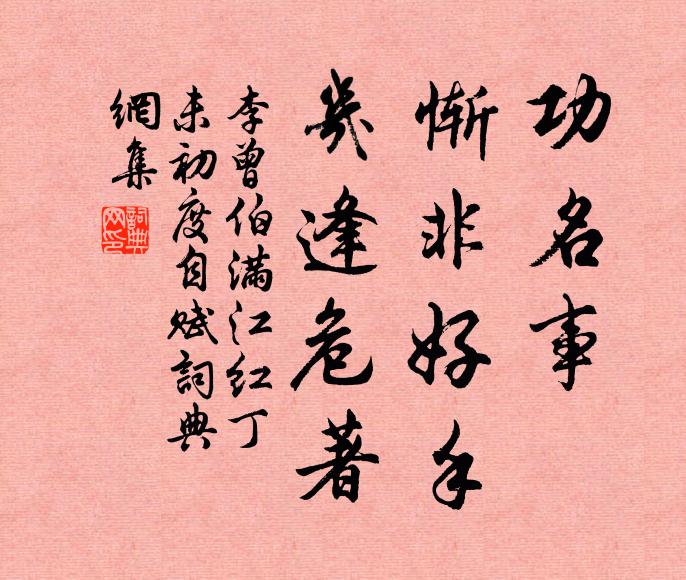 功名事
惭非好手
幾逢危著
李曾伯满江红丁
未初度自赋詞典
網集
詞典
网印